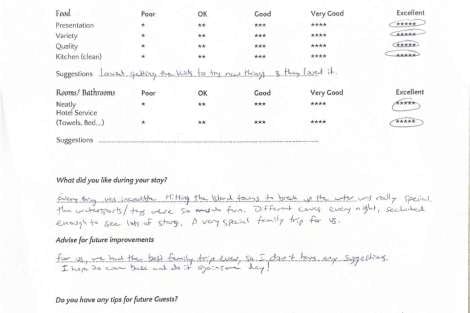 Food Poor OK Good Very Good Excellent
Presentation * ** *** **** *****
Variety * ** *** **** *****
Quality * ** *** **** *****
Kitchen (clean) * ** *** **** *****
Suggestions Loved getting the kids to try new things & they loved it.
Rooms/ Bathrooms Poor OK Good Very Good Excellent
Neatly * ** *** **** *****
Hotel Service
(Towels, Bed...) * ** *** **** *****
Suggestions
What did you like during your stay?
everything was incredible. Hitting the island towns to break up the water was really special.
The watersports/toys were so much fun. Different caves every night, secluded
enough to see lots of stars. A very special family trip for us.
Advise for future improvements
For us, we had the best family trip ever, so I don't have any suggestions.
I hope to come back and do it again some day!
Do you have any tips for future Guests?